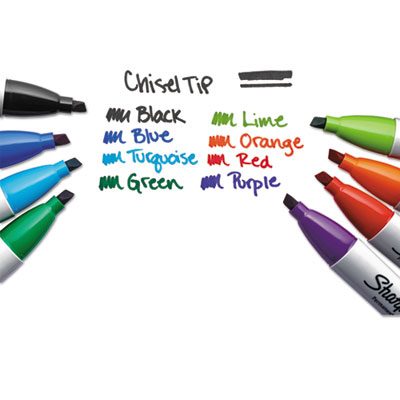 Chisel Tip
Black
Blue
Turquoise
Green
Lime
Orange
Red
Purple